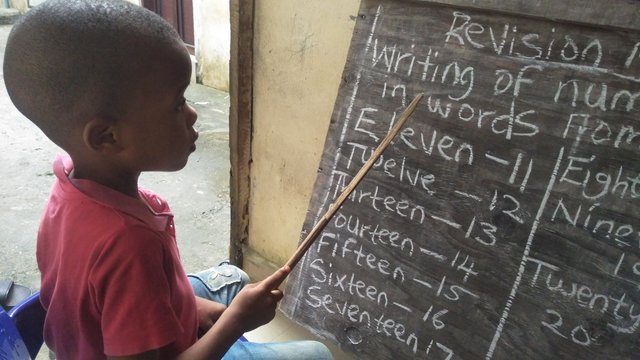 Revision
Writing of num
in words from
Eleven - 11
Twelve - 12
Thirteen - 13
Fourteen - 14
Fifteen - 15
Sixteen - 16
Seventeen 17
Eight
Nine
19
Twenty
20